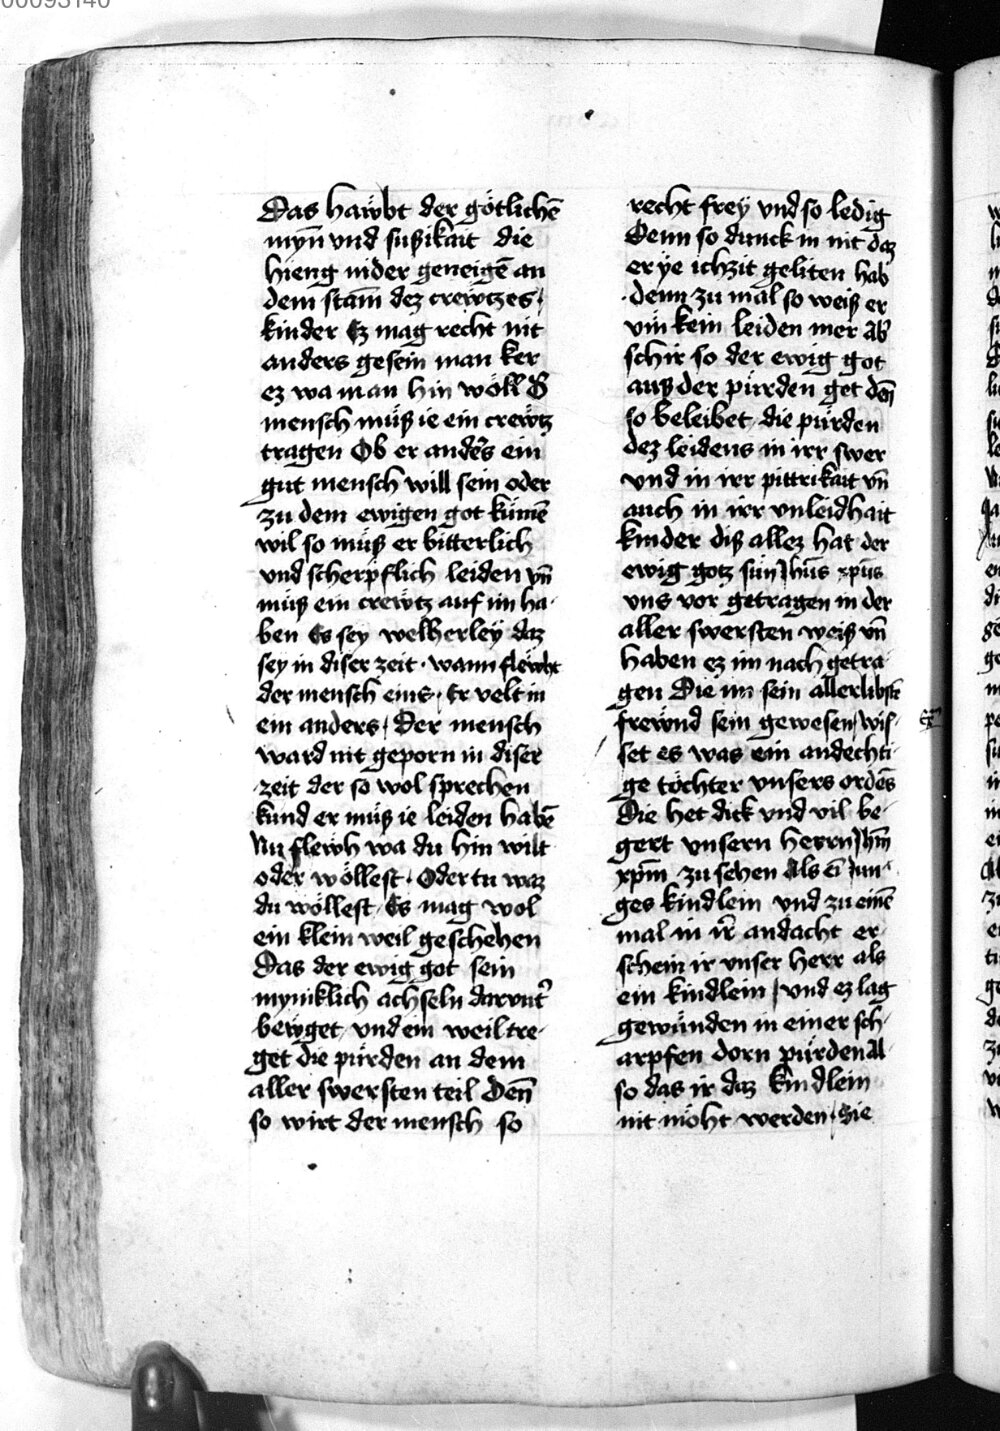 00093140
Das haẅbt der götlichē
myn̄ vnd sußikait die
hieng nider geneigē an
dem stam̄ dez creẅtzes
kinder Ez mag recht nit
anders gesein man ker
ez wa man hin wöll d̓
mensch mu̇ß ie ein creẅtz
tragen Ob er anders̄ ein
gut mensch will sein oder
zu dem ewigen got kümē
wil so müß er bitterlich
vnd scherpflich leiden vn̄
müß ein creẅtz auf im ha-
ben Es sey welherleÿ daz
sey in diser zeit · wann fleẅht
der mensch eins · Er velt in
ein anders · Der mensch
ward nit geporn in diser
zeit der so wol sprechen
kund er müß ie leiden habē
Nu fleẅh wa du hin wilt
oder wöllest · Oder tu waz
du wöllest Es mag wol
ein klein weil geschehen
Das der ewig got sein
myniklich achseln darunt̓
beẅget vnd ein weil tre-
get die pürden an dem
aller swersten teil Den̄
so wirt der mensch so
recht freÿ vnd so ledig
Denn so dunck in nit daz
er ÿe ichzit geliten hab
denn zu mal so weiß er
vm̄ kein leiden mer Ab̓
schir so der ewig got
auß der pürden get den̄
so beleibet die pürden
dez leidens in irr swer
vnd in irr pittrikait vn̄
auch in irr vnleidhait
kinder diß allez hat der
ewig gotz sün Jhūs xpūs
vns vor getragen in der
aller swersten weiß vn̄
haben ez im nach getra-
gen Die im sein allerlibste
freẅnd sein gewesen wis-
set es was ein andechti-
ge tochter vnsers ordēs
Die het dick vnd vil be-
gert vnsern herrn Jhm̄
xpm̄ zu sehen Als ei̅ Jun-
ges kindlein vnd zu einē
mal in ir̄ andacht er-
schein ir vnser herr als
ein kindlein vnd ez lag
gewünden in einer sch-
arpfen dorn pürden Al-
so das ir daz kindlein
nit moht werden · Sie